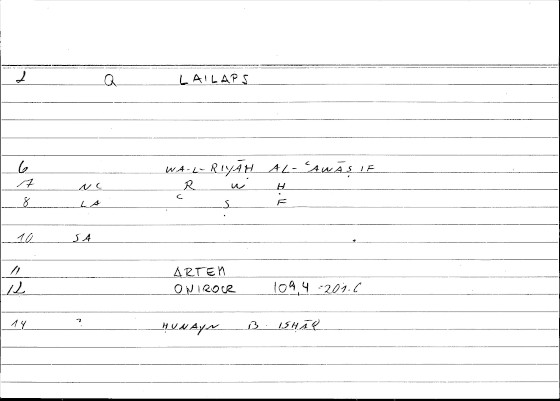 2 Q LAILAPS
6 WA-L-RIYĀḤ AL-ʿAWĀṢIF
7 NC R W Ḥ
8 LA ʿ Ṣ F
10 SA
11 ARTEM
12 ONIROCR 109,4
14 ḤUNAYN B. ISḤĀQ